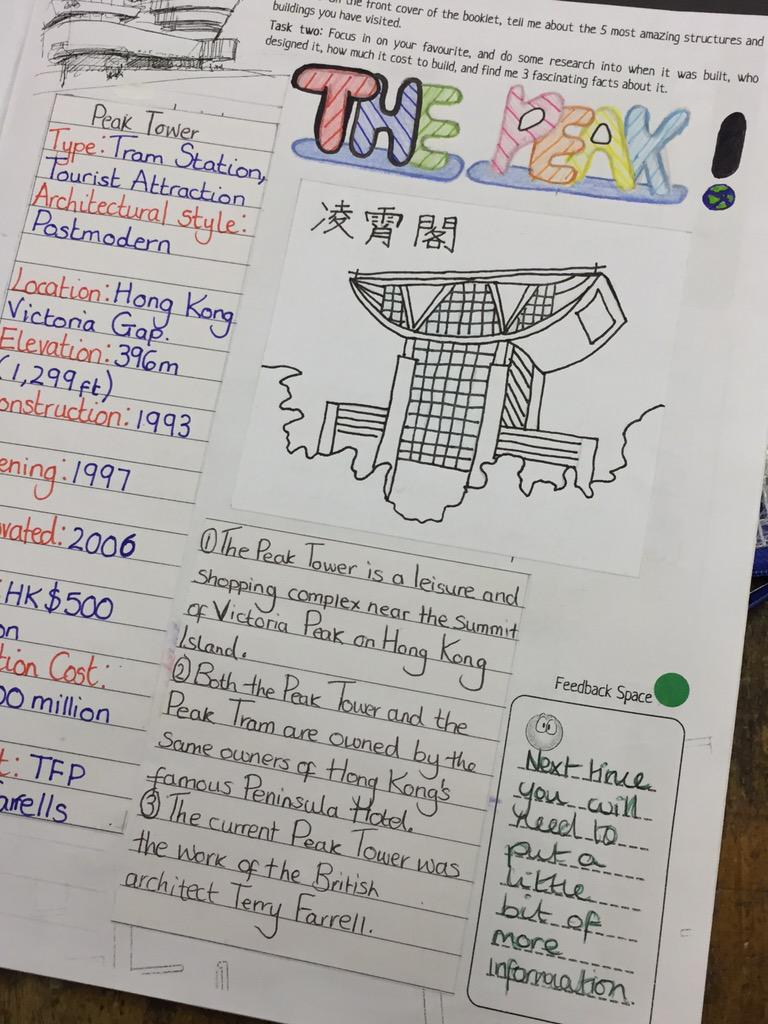 the front cover of the booklet, tell me about the 5 most amazing structures and
buildings you have visited.
Task two: Focus in on your favourite, and do some research into when it was built, who
designed it, how much it cost to build, and find me 3 fascinating facts about it.
THE PEAK!
Peak Tower
Type: Tram Station,
Tourist Attraction
Architectural style:
Postmodern
Location: Hong Kong
Victoria Gap.
Elevation: 396m
(1,299ft)
onstruction: 1993
ening: 1997
vated: 2006
HK$500
on
tion Cost:
00 million
t: TFP
arrells
凌霄閣
① The Peak Tower is a leisure and
shopping complex near the summit
of Victoria Peak on Hong Kong
Island.
② Both the Peak Tower and the
Peak Tram are owned by the
same owners of Hong Kong's
famous Peninsula Hotel.
③ The current Peak Tower was
the work of the British
architect Terry Farrell.
Feedback Space
Next time
you will
need to
put a
little
bit of
more
information.